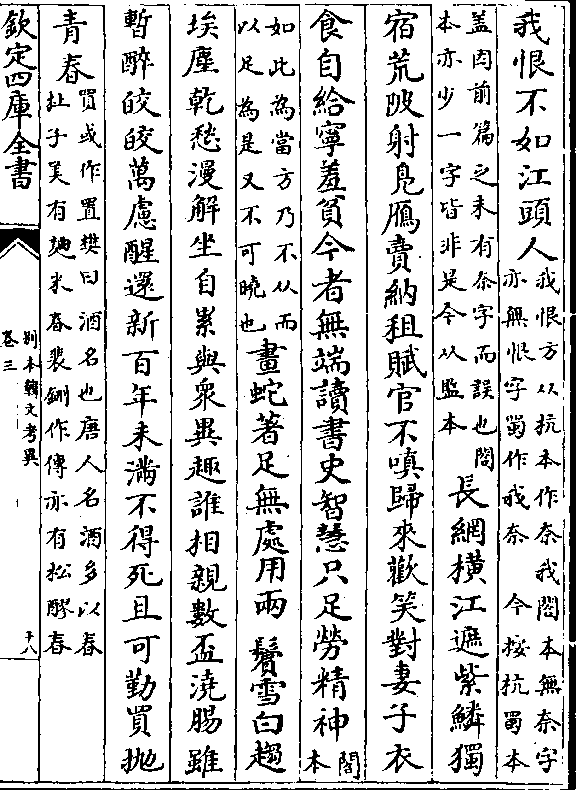 我恨不如江頭人我恨方从杭本作奈我閣本無奈字
亦無恨字蜀作我奈 今按杭蜀本
盖因前篇之末有奈字而誤也閣
本亦少一字皆非是今从監本
長網橫江遮紫鱗獨
宿荒陂射鳧鴈賣納租賦官不嗔歸來歡笑對妻子衣
食自給寧羞貧今者無端讀書史智慧只足勞精神閣
本
如此為當方乃不从而
以足為是又不可曉也
畫蛇著足無處用兩鬢雪白趨
埃塵乾愁漫解坐自累與衆異趣誰相親數盃澆腸雖
暫醉皎皎萬慮醒還新百年未滿不得死且可勤買拋
青春買或作置樊曰酒名也唐人名酒多以春
杜子美有麴米春裴鉶作傳亦有松醪春
欽定四庫全書
別本韓文考異
卷三
十八